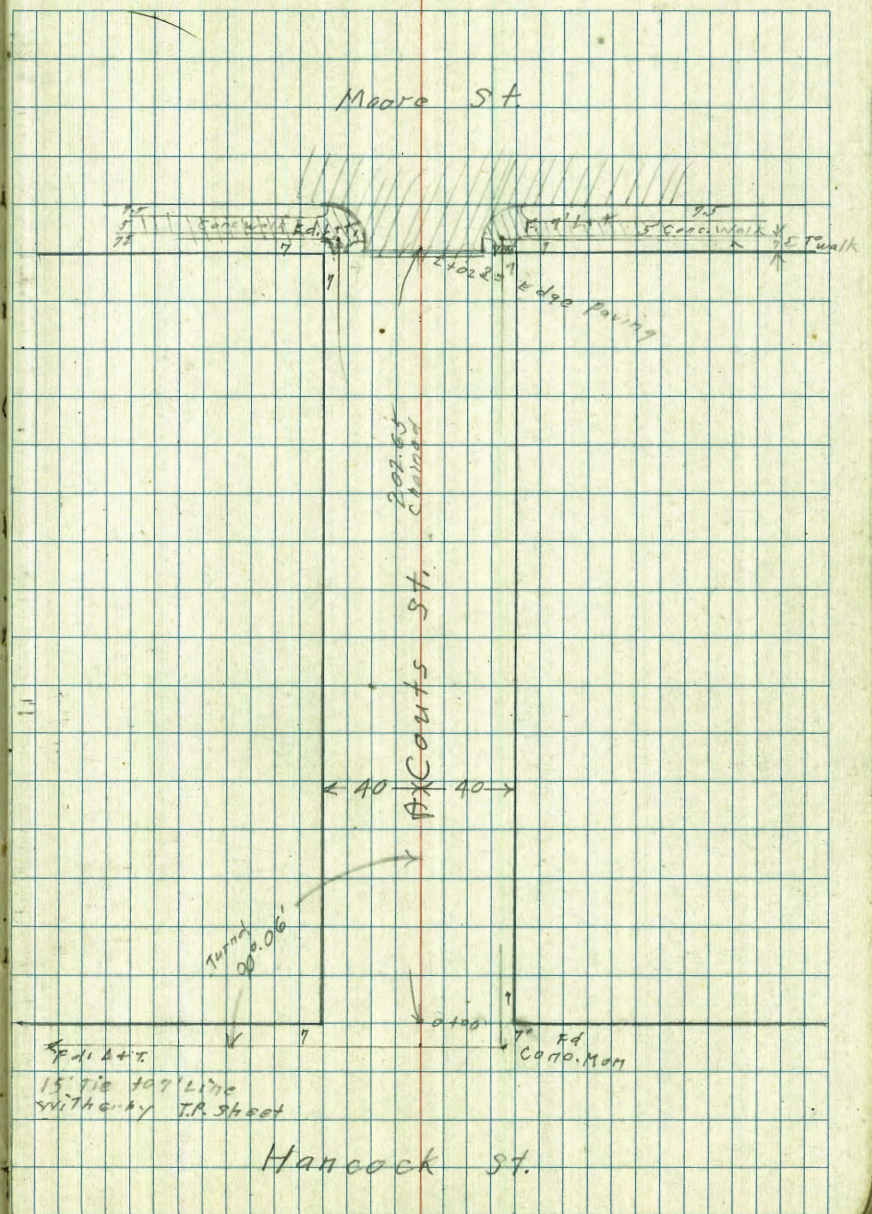 Moore St.
7.5
5
7.5
Conc. Walk
Fd. L & T.
7
7
Fd. L & T
7.5
5' Conc. Walk
7
To walk
2+02.85
Edge Paving
202.65
Chained
Couts St.
40
40
Turned
90°.06'
0+00
7
7
7'
Fd
Conc. Mon
Fd. L & T.
15' Tie to 7' Line
Witherby T.P. Sheet
Hancock St.